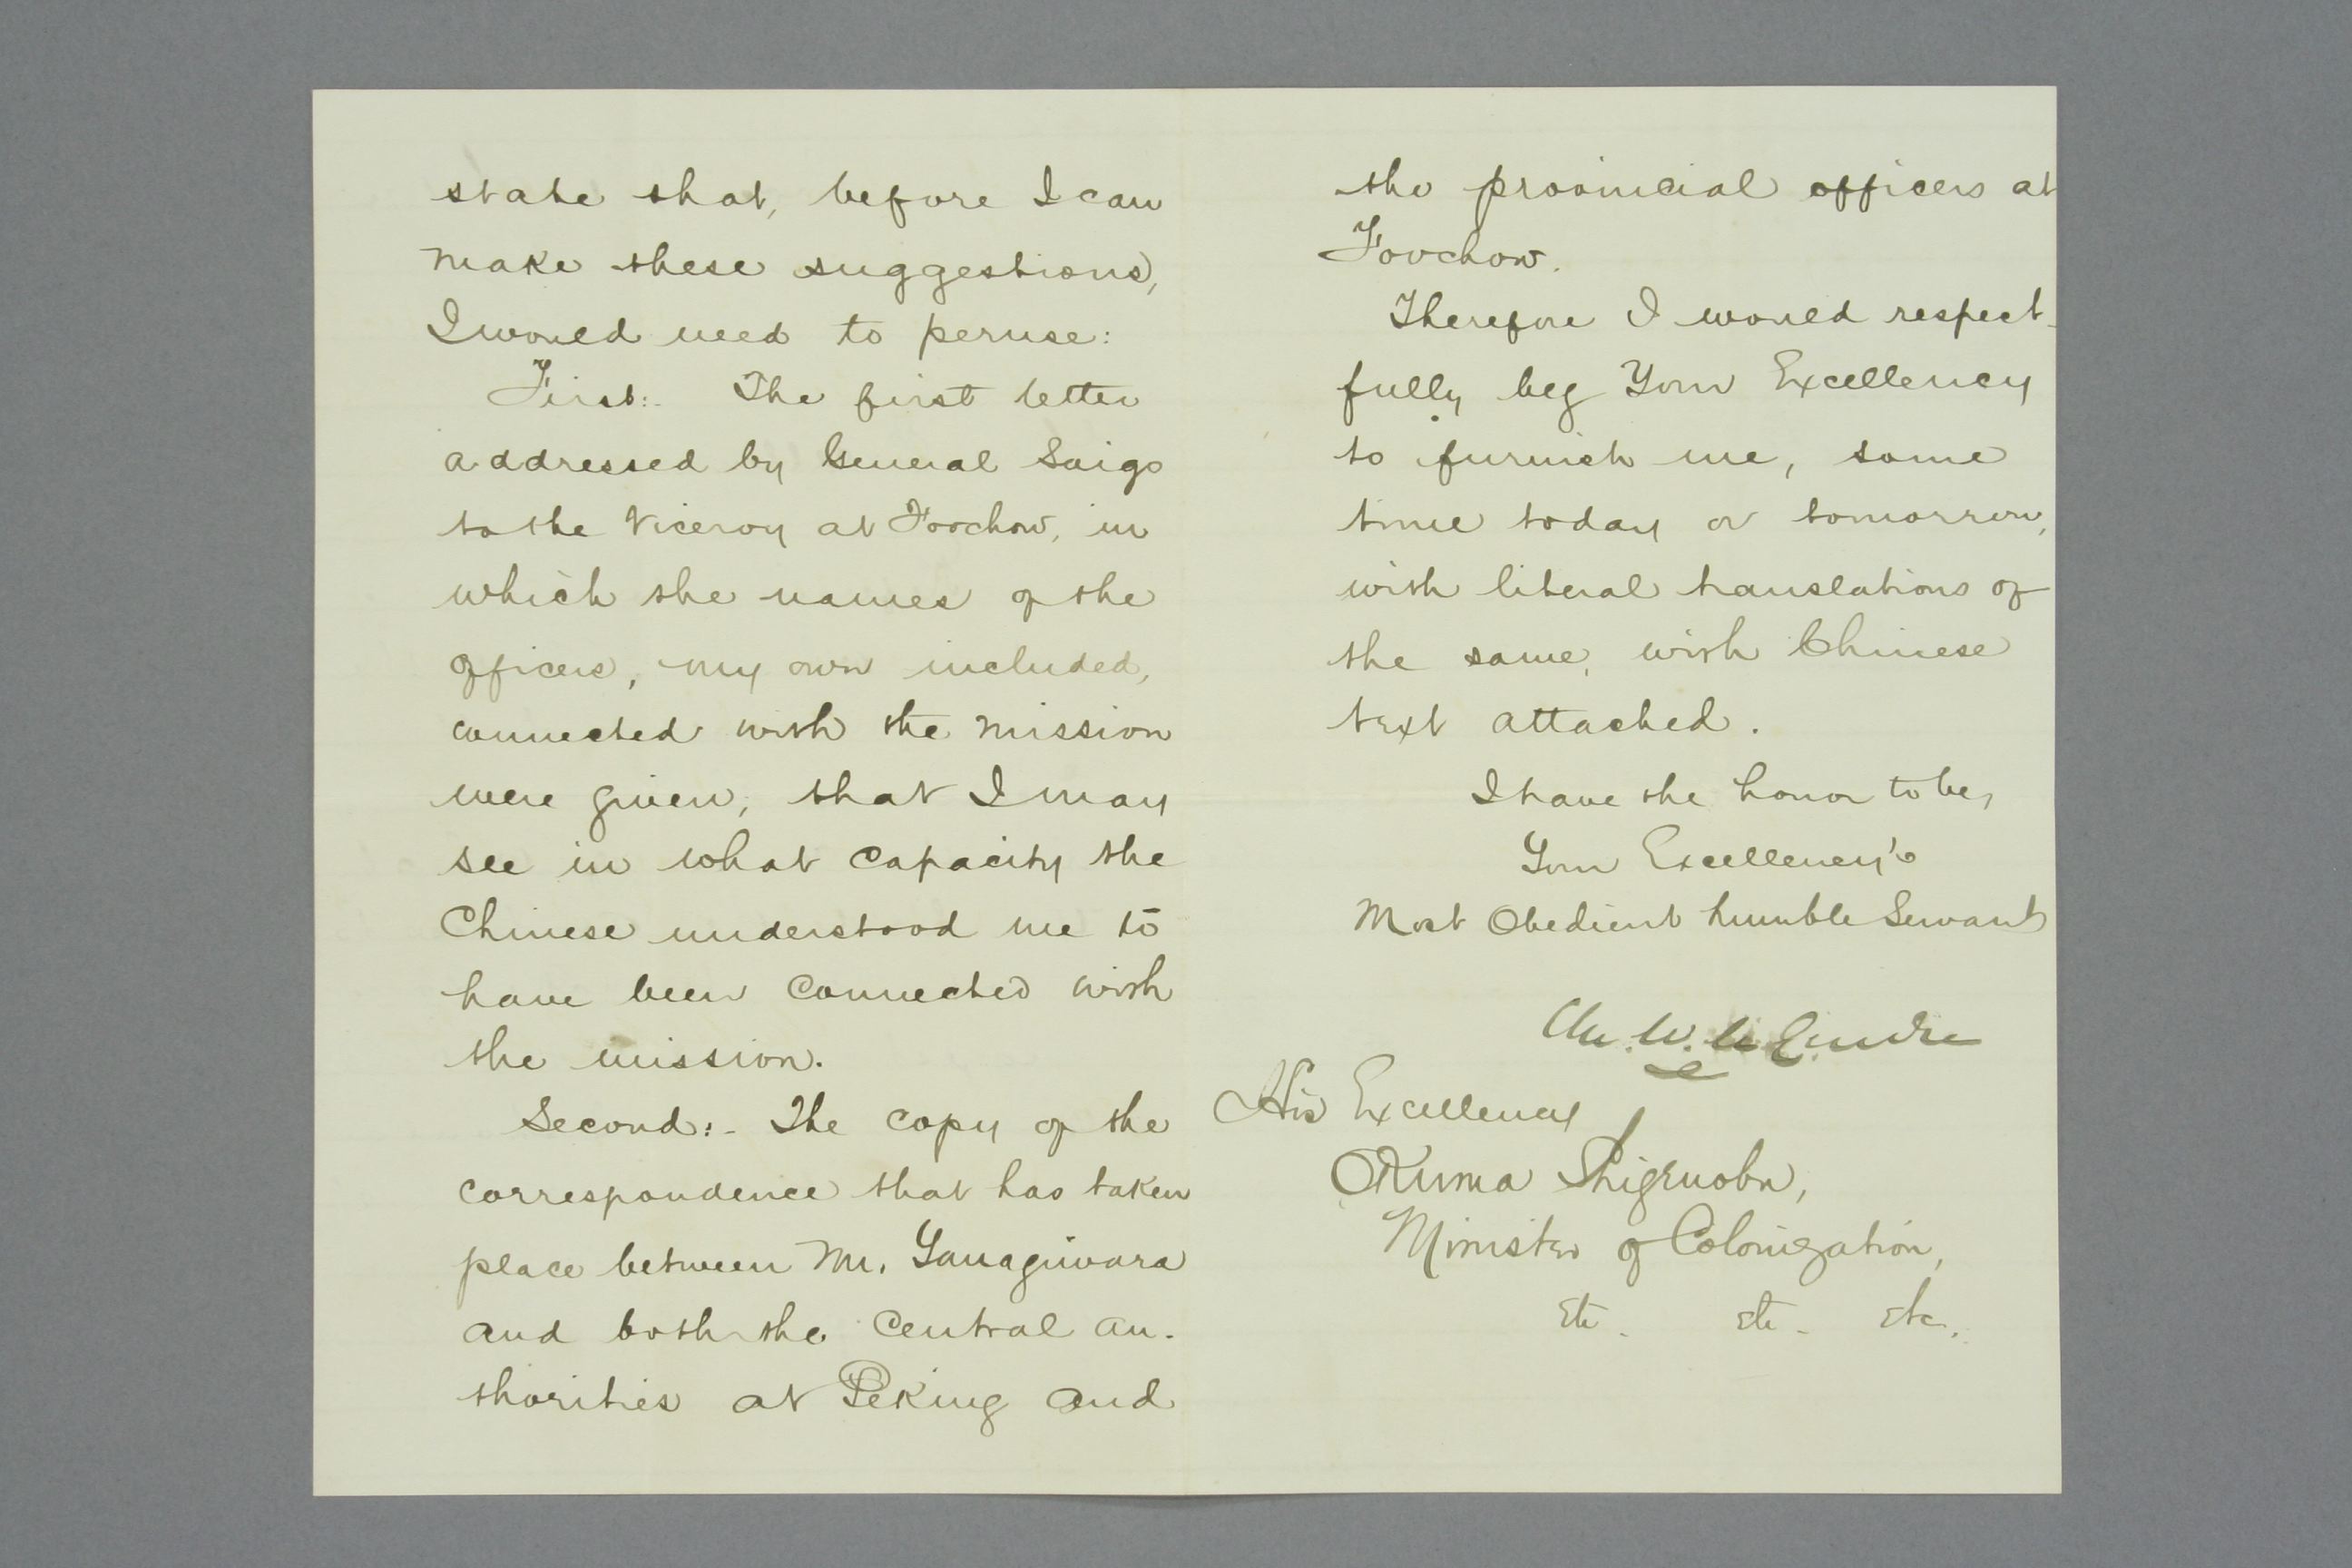 state that, before I can
make these suggestions,
I would need to peruse:
First:- The first letter
addressed by General Saigo
to the Viceroy at Foochow, in
which the names of the
officers, my own included,
connected with the mission
were given; that I may
see in what capacity the
Chinese understood me to
have been connected with
the mission.
Second:- The copy of the
correspondence that has taken
place between Mr. Yanagiwara
and both the Central au-
thorities at Peking and
the provincial officers at
Foochow.
Therefore I would respect-
fully beg Your Excellency
to furnish me, some
time today or tomorrow,
with literal translations of
the same, with Chinese
text attached.
I have the honor to be,
Your Excellency's
Most Obedient humble Servant
His Excellency
Okuma Shigenobu,
Minister of Colonization,
etc. etc. etc.